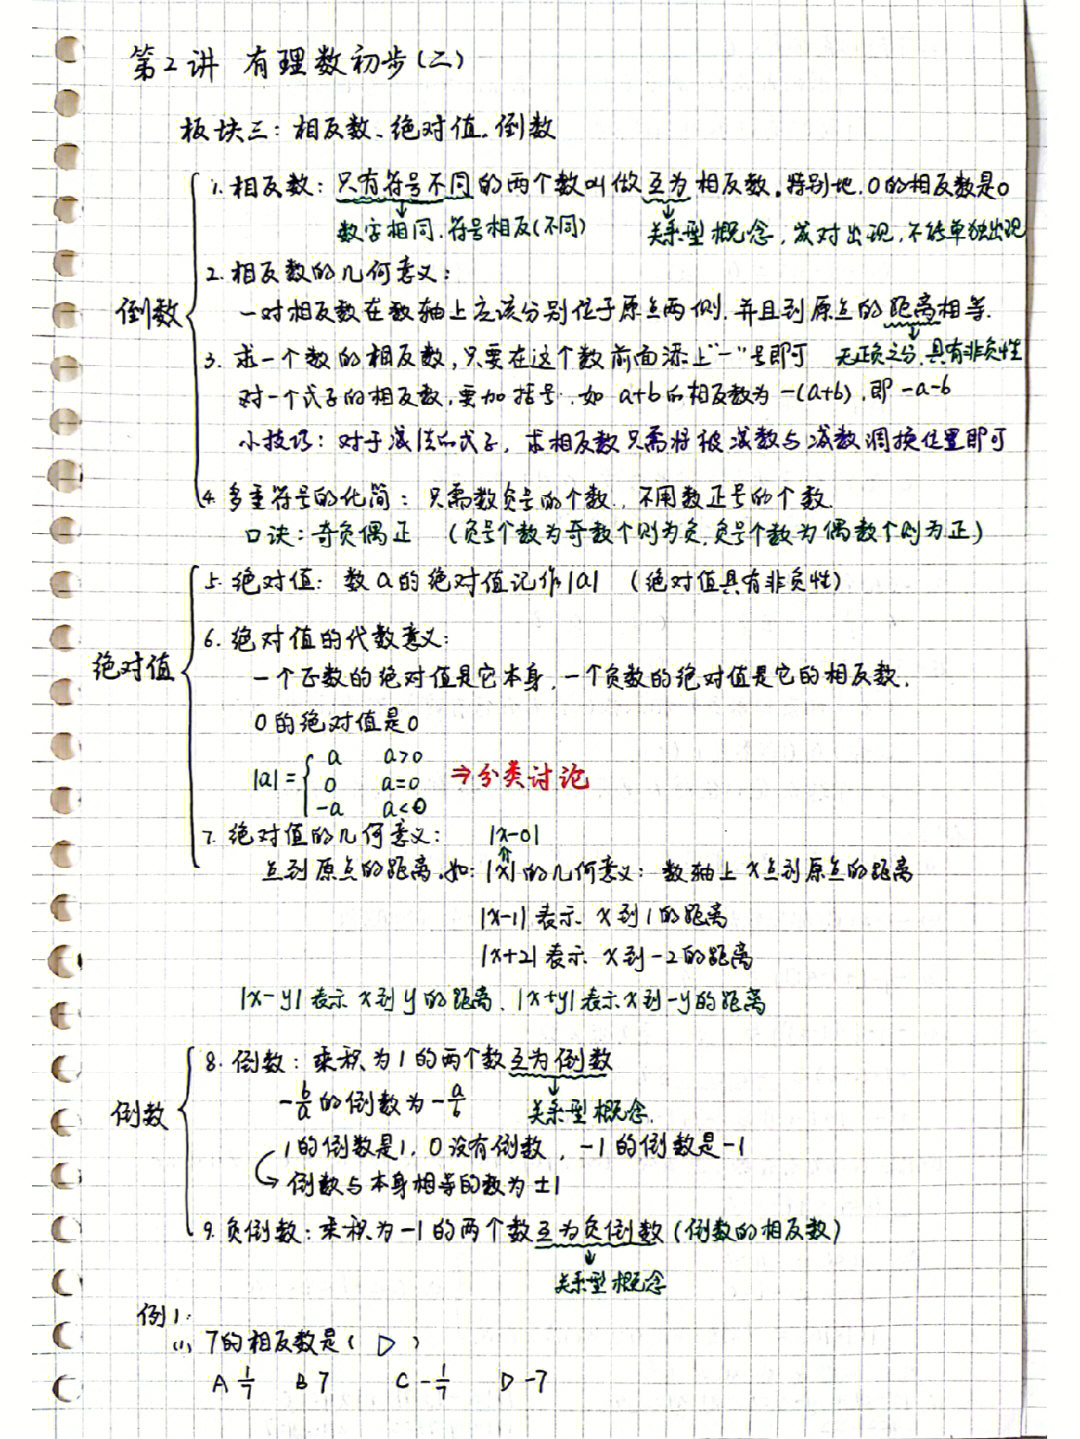 第2讲 有理数初步(二)
板块三：相反数、绝对值、倒数
1. 相反数：只有符号不同的两个数叫做互为相反数。特别地，0的相反数是0
数字相同，符号相反(不同) 关系型概念，成对出现，不能单独出现
2. 相反数的几何意义：
倒数
一对相反数在数轴上应该分别位于原点两侧，并且到原点的距离相等.
3. 求一个数的相反数，只要在这个数前面添上"-"号即可 无正负之分，具有非负性
对一个式子的相反数，要加括号，如 a+b的相反数为 -(a+b)，即 -a-b
小技巧：对于减法的式子，求相反数只需将被减数与减数调换位置即可
4. 多重符号的化简：只需数负号的个数，不用数正号的个数.
口诀：奇负偶正 (负号个数为奇数个则为负，负号个数为偶数个则为正)
5. 绝对值：数a的绝对值记作|a| (绝对值具有非负性)
6. 绝对值的代数意义：
绝对值
一个正数的绝对值是它本身，一个负数的绝对值是它的相反数，
0的绝对值是0
|a|={ a a>0
0 a=0 ⇒分类讨论
-a a<0
7. 绝对值的几何意义： |x-0|
点到原点的距离，如：|x|的几何意义：数轴上x点到原点的距离
|x-1|表示 x到1的距离
|x+2|表示 x到-2的距离
|x-y|表示x到y的距离、|x+y|表示x到-y的距离
8. 倒数：乘积为1的两个数互为倒数
倒数
-b/a的倒数为-a/b 关系型概念.
1的倒数是1，0没有倒数，-1的倒数是-1
倒数与本身相等的数为±1
9. 负倒数：乘积为-1的两个数互为负倒数(倒数的相反数)
关系型概念
例1：
(1) 7的相反数是( D )
A 1/7 B 7 C -1/7 D -7